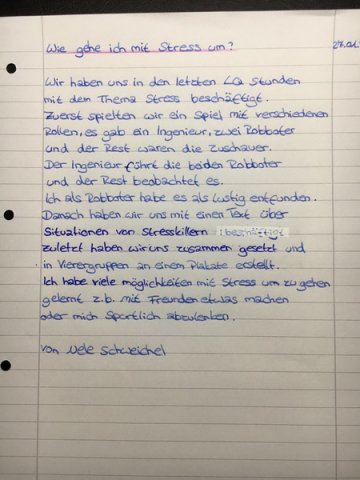 Wie gehe ich mit Stress um?
Wir haben uns in den letzten LQ Stunden
mit dem Thema Stress beschäftigt.
Zuerst spielten wir ein Spiel mit verschiedenen
Rollen, es gab ein Ingenieur, zwei Robboter
und der Rest waren die Zuschauer.
Der Ingenieur führt die beiden Robboter
und der Rest beobachtet es.
Ich als Robboter habe es als lustig entfunden.
Danach haben wir uns mit einen Text über
Situationen von Stresskillern beschäftigt
zuletzt haben wir uns zusammen gesetzt und
in Vierergruppen an einem Plakate erstellt.
Ich habe viele möglichkeiten mit Stress um zu gehen
gelernt z.b. mit Freunden etwas machen
oder mich Sportlich abzulenken.
von Nele Schweichel